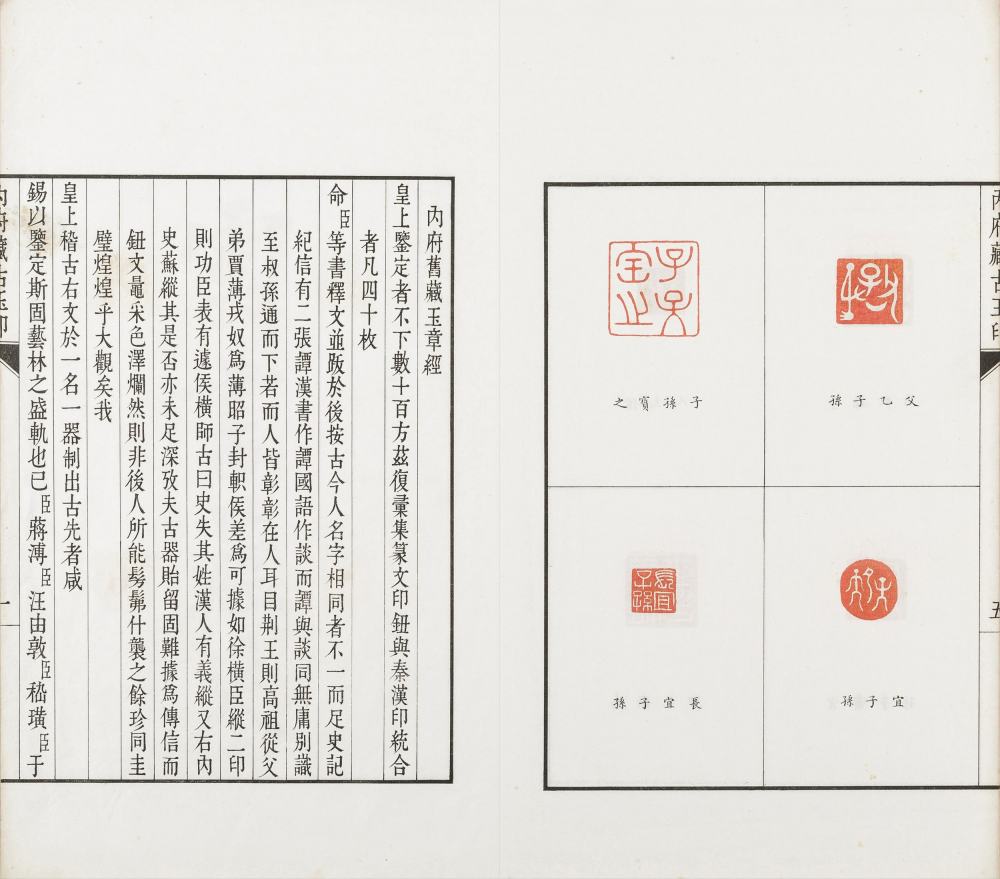 內府藏古玉印
五
父乙子孫
子孫寶之
宜子孫
長宜子孫
內府舊藏玉章經
皇上鑒定者不下數十百方茲復彙集篆文印鈕與秦漢印統合
者凡四十枚
命臣等書釋文並跋於後按古今人名字相同者不一而足史記
紀信有二張譚漢書作譚國語作談而譚與談同無庸別識
至叔孫通而下若而人皆彰彰在人耳目荆王則高祖從父
弟賈薄戎奴為薄昭子封軹侯差為可據如徐橫臣縱二印
則功臣表有遽侯橫師古曰史失其姓漢人有義縱又右內
史蘇縱其是否亦未足深攷夫古器貽留固難據為傳信而
鈕文鼂采色澤爛然則非後人所能髣髴什襲之餘珍同圭
璧煌煌乎大觀矣我
皇上稽古右文於一名一器制出古先者咸
錫以鑒定斯固藝林之盛軌也已臣蔣溥臣汪由敦臣嵇璜臣于
內府藏古玉印
一